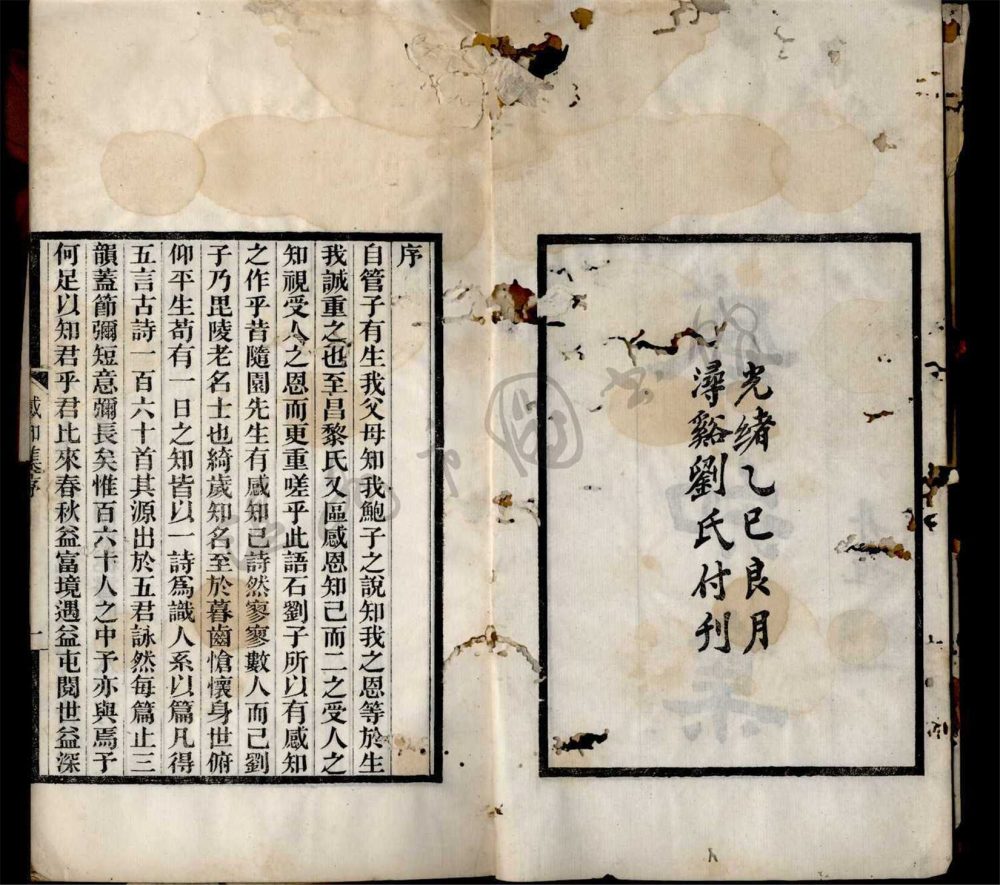 光緒乙巳良月
潯谿劉氏付刊
序
自管子有生我父母知我鮑子之說知我之恩等於生
我誠重之也至昌黎氏又區感恩知己而二之受人之
知視受人之恩而更重嗟乎此語石劉子所以有感知
之作乎昔隨園先生有感知己詩然寥寥數人而已劉
子乃毘陵老名士也綺歲知名至於暮齒愴懷身世俯
仰平生苟有一日之知皆以一詩爲識人系以篇凡得
五言古詩一百六十首其源出於五君詠然每篇止三
韻蓋節彌短意彌長矣惟百六十人之中予亦與焉予
何足以知君乎君比來春秋益富境遇益屯閱世益深
感知集序
一